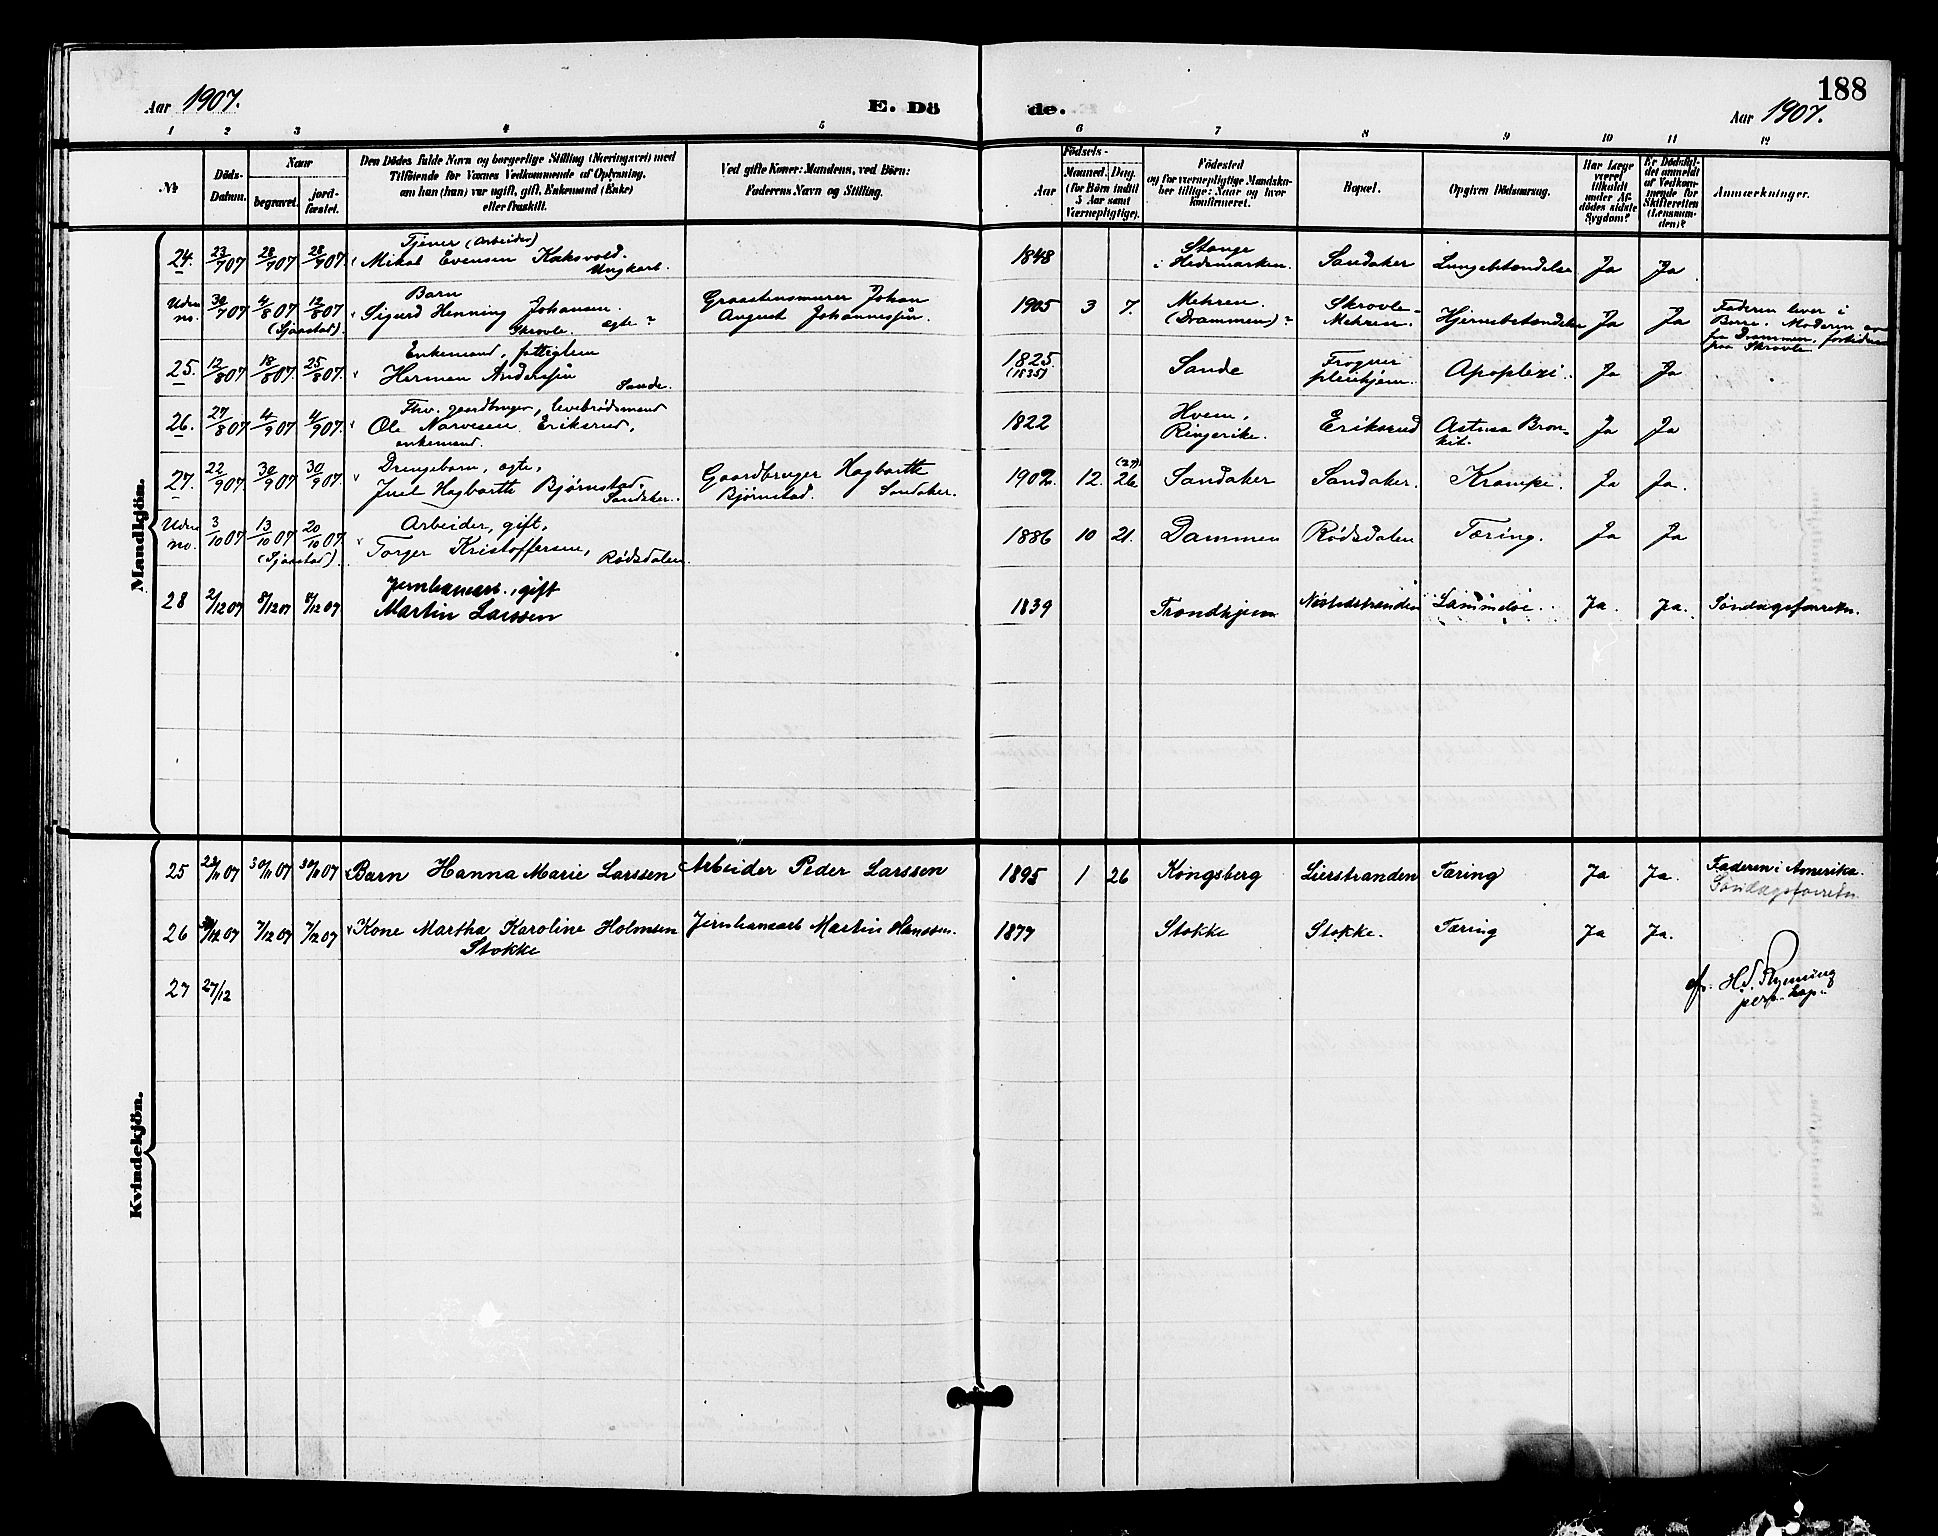 188
Aar 1907.
E. Dö de.
Aar 1907.
1 2 3 4 5 6 7 8 9 10 11 12
№
Döds-
Datum.
Naar
begravet.
jord-
fæstet.
Den Dödes fulde Navn og borgerlige Stilling (Næringsvei) med
Tilföiende for Voxnes Vedkommende af Oplysning,
om han (hun) var ugift, gift, Enkemand (Enke)
eller fraskilt.
Ved gifte Koner: Mandens, ved Börn:
Faderens Navn og Stilling.
Födsels-
Aar
Maaned. Dag.
(for Börn indtil
5 Aar samt
Værnepligtige).
Födested
og for værnepligtige Mandska-
ber tillige: Naar og hvor
konfirmeret.
Bopæl.
Opgiven Dödsaarsag.
Har Læge
været
tilkaldt
under Af-
dödes sidste
Sygdom?
Er Dödsfal-
det anmeldt
af Vedkom-
mende for
Skifteretten
(Lensman-
den)?
Anmærkninger.
Mandkjön.
24. 23/7 07 28/7 07 28/7 07 Tjener (Arbeider)
Mikal Evensen Kaksvold.
Ungkarl.
1848 Stange
i Hedemarken. Sandaker Lungebetændelse Ja Ja
Uden
no. 30/7 07 4/8 07 12/8 07 Barn
(Sjaastad). Sigurd Henning Johansen.
Skrovle. ægte?
Graastensmurer Johan
August Johannessøn.
1905 3 7. Mehren.
(Drammen)? Skrovle-
Mehren. Hjernebetændelse Ja Ja Faderen lever i
Borre. Moderen
fra Drammen,
paa Skrovle.
25. 12/8 07 18/8 07 25/8 07. Enkemand, fattiglem
Herman Anderssøn
Sande.
1825
(1835) Sande Frogner
pleiehjem. Apoplexi. Ja Ja
26. 27/8 07 4/9 07 4/9 07. Fhv. gaardbruger, levebrødsmand
Ole Narvesen Eriksrud,
enkemand.
1822 Hvem,
Ringerike. Eriksrud Astma Bron-
kit. Ja Ja
27. 22/9 07. 30/9 07 30/9 07. Drengebarn, ægte,
Juel Hagbarth Bjørnstad.
Sandaker.
Gaardbruger Hagbarth
Bjørnstad. Sandaker.
1902. 12. (27)
26 Sandaker Sandaker. Krampe. Ja Ja.
Uden
no. 3/10 07 13/10 07 20/10 07. Arbeider, gift,
(Sjaastad). Torger Kristoffersen,
Rødsdalen.
1886 10 21. Dammen Rødsdalen Tæring. Ja Ja
28 2/12 07 8/12 07 8/12 07 Jernbanearb., gift
Martin Larssen
1839 Trondhjem Nøstedstranden Ja. Ja. Søndagsforretn.
Kvindekjön.
25 23/11 07 30/11 07 30/11 07 Barn Hanna Marie Larssen Arbeider Peder Larssen 1895 1 26 Kongsberg Lierstranden Tæring Ja Ja. Faderen i Amerika.
Søndagsforretn.
26 12 07 7/12 07 7/12 07 Kone Martha Karoline Holmsen
Stokke
Jernbanearb Martin Hanssen. 1877 Stokke Stokke. Tæring Ja Ja.
27 27/12
H. S. Ryening
pers. kap.